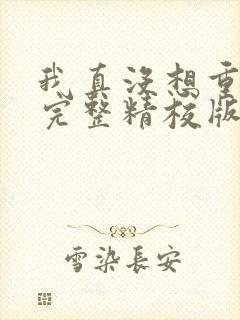 我真没想重
完整精校版
雪染长安